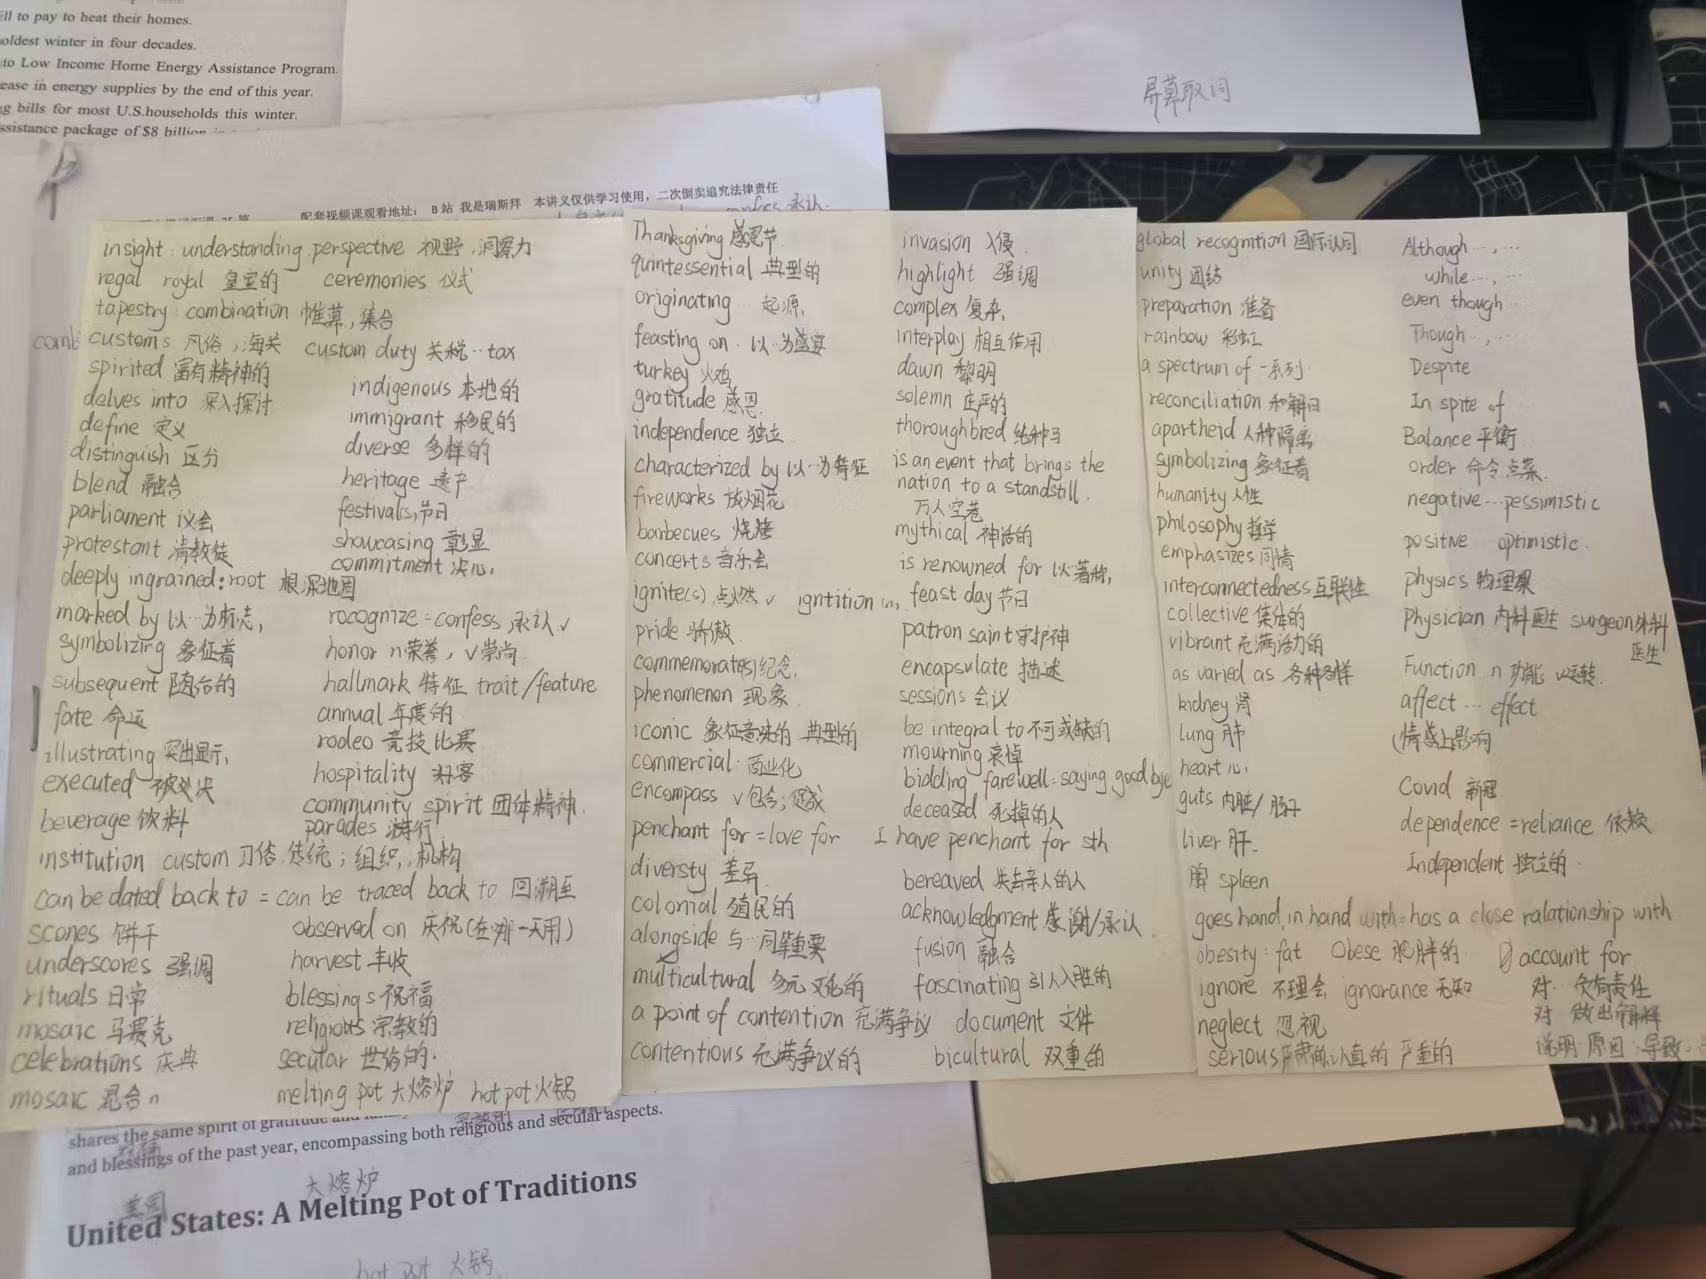 ill to pay to heat their homes.
oldest winter in four decades.
to Low Income Home Energy Assistance Program.
ease in energy supplies by the end of this year.
g bills for most U.S.households this winter.
ssistance package of $8 billion
屏幕取词
配套视频课观看地址： B 站 我是瑞斯拜 本讲义仅供学习使用，二次倒卖追究法律责任
confess 承认.
insight: understanding perspective 视野,洞察力
regal royal 皇室的 ceremonies 仪式
tapestry: combination 帷幕,集合
comb
customs 风俗,海关 custom duty 关税··tax
spirited 富有精神的
indigenous 本地的
delves into 深入探讨
immigrant 移民的
define 定义
diverse 多样的
distinguish 区分
heritage 遗产
blend 融合
festivals,节日
parliament 议会
showcasing 彰显
protestant 清教徒
commitment 决心,
deeply ingrained: root 根深地固
marked by 以··为标志,
rocognize = confess 承认 v
symbolizing 象征着
honor n荣誉, v崇尚
subsequent 随后的
hallmark 特征 trait/feature
fate 命运
annual 年度的
illustrating 突出显示,
rodeo 竞技比赛
executed 被处决
hospitality 好客
community spirit 团体精神.
beverage 饮料
parades 游行
institution custom 习俗.传统；组织,机构
can be dated back to = can be traced back to 回溯至
scones 饼干
observed on 庆祝(在哪一天用)
underscores 强调
harvest 丰收
rituals 日常
blessings 祝福
mosaic 马赛克
religious 宗教的
celebrations 庆典
secular 世俗的.
mosaic 混合 n
melting pot 大熔炉 hot pot 火锅
Thanksgiving 感恩节
quintessential 典型的
originating ·· 起源,
feasting on. 以··为盛宴
turkey 火鸡
gratitude 感恩
independence 独立
characterized by 以··为特征
fireworks 放烟花
barbecues 烧烤
concerts 音乐会
ignite(s) 点燃 v igntition (n)
pride 骄傲
commemorate(s) 纪念,
phenomenon 现象
iconic 象征意味的 典型的
commercial 商业化
encompass v包含；促成
penchant for = love for I have penchant for sth
diversty 差异
colonial 殖民的
alongside 与··同等重要
multicultural 多元文化的
a point of contention 充满争议 document 文件
contentious 充满争议的
invasion 入侵
highlight 强调
complex 复杂,
interplay 相互作用
dawn 黎明
solemn 庄严的
thoroughbred 纯种马
is an event that brings the
nation to a standstill.
万人空巷
mythical 神话的
is renowned for 以··著称,
feast day 节日
patron saint 守护神
encapsulate 描述
sessions 会议
be integral to 不可或缺的
mourning 哀悼
bidding farewell = saying good bye
deceased 死掉的人
bereaved 失去亲人的人
acknowledgment 感谢/承认
fusion 融合
fascinating 引人入胜的
bicultural 双重的
global recognition 国际认同
unity 团结
preparation 准备
rainbow 彩虹
a spectrum of 一系列
reconciliation 和解日
apartheid 人种隔离
symbolizing 象征着
humanity 人性
philosophy 哲学
emphasizes 同情
interconnectedness 互联性
collective 集体的
vibrant 充满活力的
as varied as 各种各样
kidney 肾
lung 肺
heart 心,
guts 内脏/肠子
liver 肝
脾 spleen
goes hand in hand with = has a close ralationship with
obesity: fat Obese 肥胖的
ignore 不理会 ignorance 无知
neglect 忽视
serious 严肃的 认真的 严重的
Although ···, ···
while ···, ···
even though ···
Though ···, ···
Despite
In spite of
Balance 平衡
order 命令.点菜.
negative ··· pessimistic
positive optimistic.
physics 物理界
Physician 内科医生 surgeon 外科
医生
Function n 功能 v运转.
affect ··· effect
(情感上影响
Covid 新冠
dependence = reliance 依赖
Independent 独立的
account for
对··负有责任
对 做出解释
说明··原因；导致
shares the same spirit of gratitude and
and blessings of the past year, encompassing both religious and secular aspects.
美国
大熔炉
United States: A Melting Pot of Traditions
hot pot 火锅